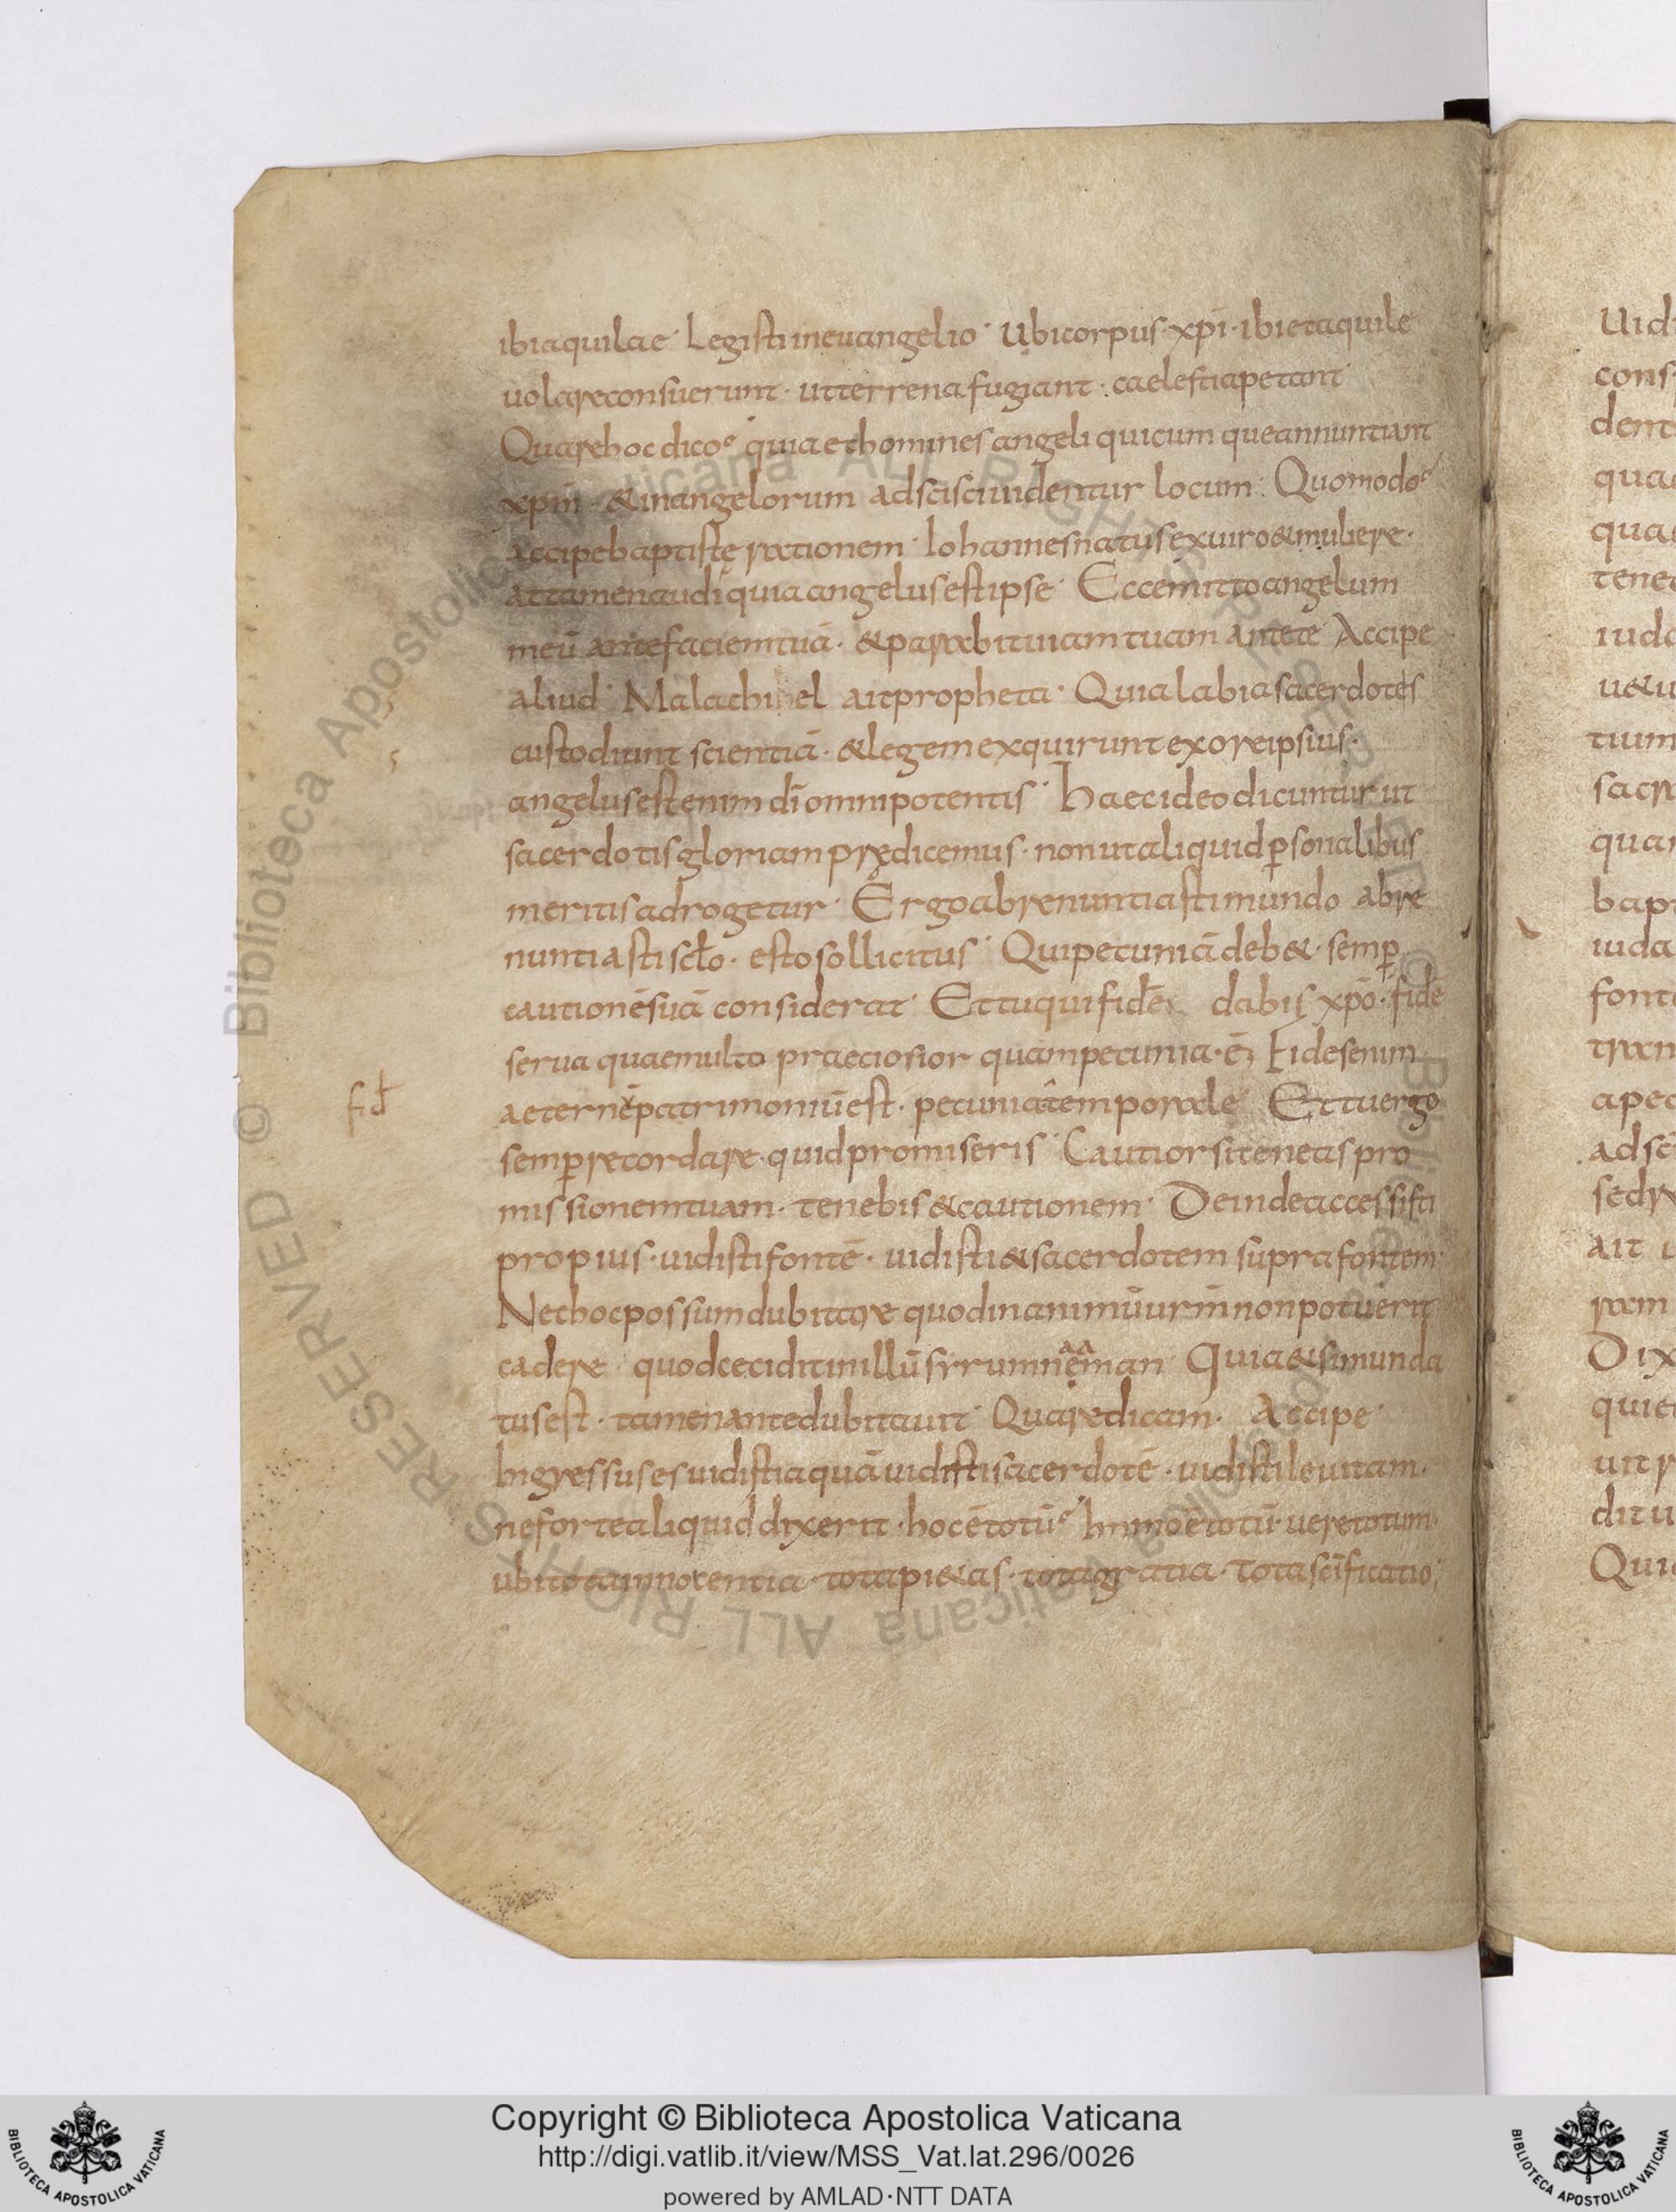 ibi aquilae · Legisti in euangelio · Ubi corpus · xp̄i · ibi et aquile
uolare consuerunt · ut terrena fugiant · caelestia petant
Quare hoc dico · quia et homines angeli quicumque annuntiant
xp̄m · & in angelorum adscisci uidentur locum · Quomodo
Accipe baptistę rationem · Iohannes natus ex uiro & muliere ·
attamen audi quia angelus est ipse · Ecce mitto angelum
meū ante faciem tuā · & parabit uiam tuam ante te Accipe
aliud · Malachi el ait propheta · Quia labia sacerdotes
custodiunt scientiā · & legem exquirunt ex ore ipsius ·
angelus est enim dī omnipotentis · Haec ideo dicuntur ut
sacerdotis gloriam prędicemus · non ut aliquid p̄sonalibus
meritis adrogetur · Ergo abrenuntiasti mundo abre
nuntiasti scl̄o · esto sollicitus · Qui pecuniā deb& · semp̄
cautionē suā considerat · Et tu qui fidē dabis xp̄o · fidē
serua quae multo praeciosior quam pecunia · ē Fides enim
aeternę patrimoniū est · pecunia temporale Et tu ergo
semp̄ recordare · quid promiseris · Cautior si teneas pro
missionem tuam · tenebis & cautionem · Deinde accessisti
propius · uidisti fontē · uidisti & sacerdotem supra fontem ·
Nec hoc possum dubitare quod in animū urm̄ non potuerit
cadere · quod cecidit in illū syrum nęman Quia & si munda
tus est · tamen ante dubitauit · Quare dicam · Accipe
Ingressus es uidisti aquā uidisti sacerdotē · uidisti leuitam ·
ne forte aliquid dixerit · hoc ē totū Immo ē totū · uere totum ·
ubi tota innocentia · tota pi&as · tota gratia · tota sc̄ificatio ;
fid̄
Uid
cons
dent
qua
qua
tene
iud
u&u
tium
sacr
qua
bap
iuda
font
tran
ape
adsc
sed
ait
ram
Dix
quie
uit
dit u
Qui
© Biblioteca Apostolica Vaticana ALL RIGHTS RESERVED
Copyright © Biblioteca Apostolica Vaticana
http://digi.vatlib.it/view/MSS_Vat.lat.296/0026
powered by AMLAD·NTT DATA
BIBLIOTECA APOSTOLICA VATICANA
BIBLIOTECA APOSTOLICA VATICANA